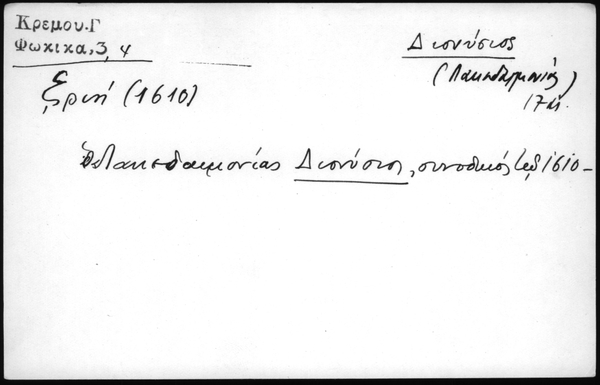 Κρεμου.Γ
Φωκικα,3, 4
Διονύσιος
(Λακεδαιμονίας)
17 αι.
(1610)
Λακεδαιμονίας Διονύσιος, συνοδικός 1610-